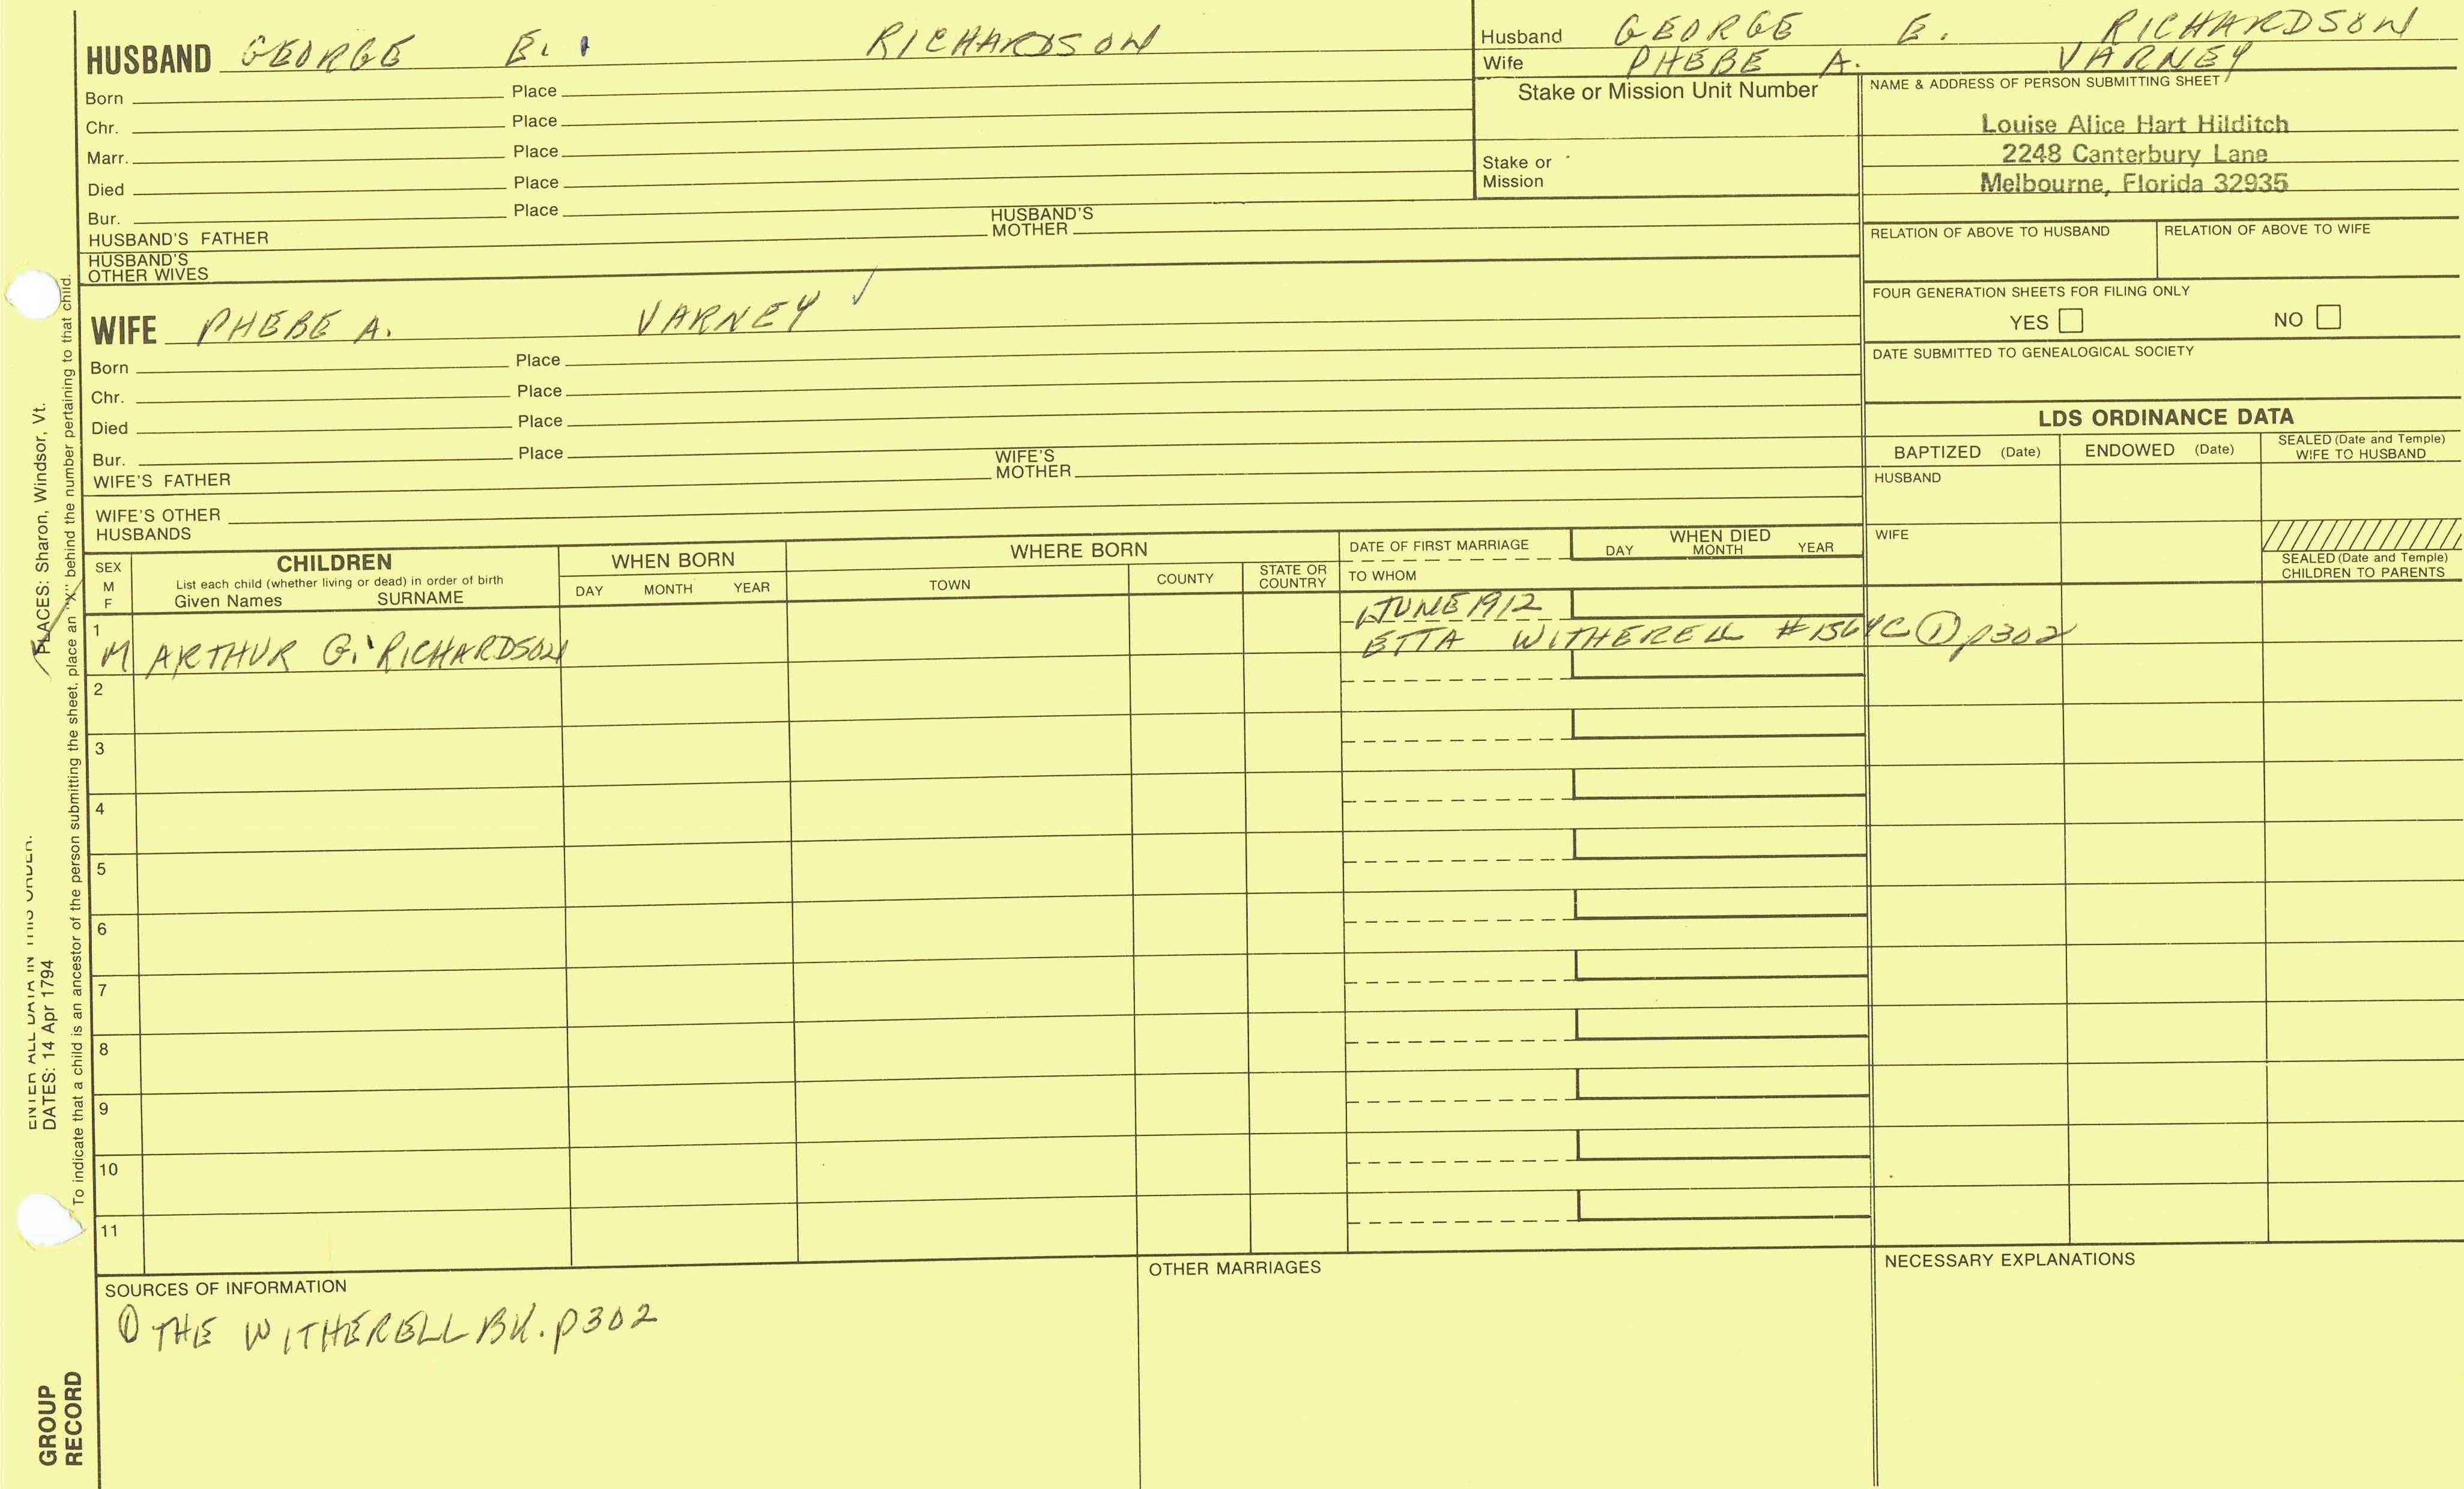 HUSBAND GEORGE E. RICHARDSON
Born Place
Chr. Place
Marr. Place
Died Place
Bur. Place
HUSBAND'S FATHER HUSBAND'S MOTHER
HUSBAND'S OTHER WIVES
Husband GEORGE E. RICHARDSON
Wife PHEBE A. VARNEY
Stake or Mission Unit Number
Stake or Mission
NAME & ADDRESS OF PERSON SUBMITTING SHEET
Louise Alice Hart Hilditch
2248 Canterbury Lane
Melbourne, Florida 32935
RELATION OF ABOVE TO HUSBAND RELATION OF ABOVE TO WIFE
FOUR GENERATION SHEETS FOR FILING ONLY
YES NO
DATE SUBMITTED TO GENEALOGICAL SOCIETY
WIFE PHEBE A. VARNEY ✓
Born Place
Chr. Place
Died Place
Bur. Place
WIFE'S FATHER WIFE'S MOTHER
WIFE'S OTHER HUSBANDS
LDS ORDINANCE DATA
BAPTIZED (Date) ENDOWED (Date) SEALED (Date and Temple) WIFE TO HUSBAND
HUSBAND
WIFE
SEALED (Date and Temple) CHILDREN TO PARENTS
SEX M F
CHILDREN
List each child (whether living or dead) in order of birth
Given Names SURNAME
WHEN BORN
DAY MONTH YEAR
WHERE BORN
TOWN COUNTY STATE OR COUNTRY
DATE OF FIRST MARRIAGE
TO WHOM
WHEN DIED
DAY MONTH YEAR
1 JUNE 1912
1 M ARTHUR G. RICHARDSON ETTA WITHERELL #1564C ① p302
2
3
4
5
6
7
8
9
10
11
SOURCES OF INFORMATION
① THE WITHERELL BK. p302
OTHER MARRIAGES
NECESSARY EXPLANATIONS
ENTER ALL DATA IN THIS ORDER:
DATES: 14 Apr 1794
PLACES: Sharon, Windsor, Vt.
To indicate that a child is an ancestor of the person submitting the sheet, place an "X" behind the number pertaining to that child.
GROUP
RECORD